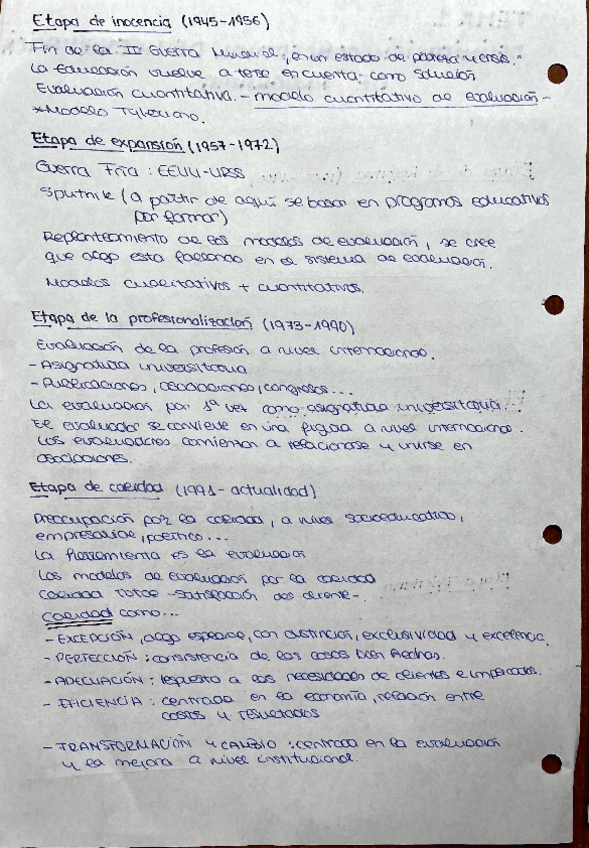 Etapa de inocencia (1945-1956)
Fin de la II Guerra Mundial, en un estado de pobreza y crisis.
La educación vuelve a tenerse en cuenta como solución
Evaluación cuantitativa. - modelo cuantitativo de evaluación -
*Modelo Tyleriano.
Etapa de expansión (1957-1972)
Guerra Fría: EEUU-URSS
Sputnik (a partir de aquí se basan en programas educativos
por formar)
Replanteamiento de los modelos de evaluación, se cree
que algo esta fallando en el sistema de evaluación.
Modelos cualitativos + cuantitativos.
Etapa de la profesionalización (1973-1990)
Evaluación de la profesión a nivel internacional.
- Asignatura universitaria
- Publicaciones, asociaciones, congresos...
La evaluación por 1ª vez como asignatura universitaria.
El evaluador se convierte en una figura a nivel internacional.
Los evaluadores comienzan a relacionarse y unirse en
asociaciones.
Etapa de calidad (1991-actualidad)
Preocupación por la calidad, a nivel socioeducativo,
empresarial, político...
La herramienta es la evaluación
Los modelos de evaluación por la calidad
Calidad total -satisfacción del cliente-
Calidad como...
- EXCEPCIÓN, algo especial, con distinción, exclusividad y excelencia.
- PERFECCIÓN: consistencia de las cosas bien hechas.
- ADECUACIÓN: respuesta a las necesidades de clientes e implicados.
- EFICIENCIA: centrada en la economía, relación entre
costos y resultados
- TRANSFORMACIÓN y CAMBIO: centrado en la evaluación
y la mejora a nivel institucional.